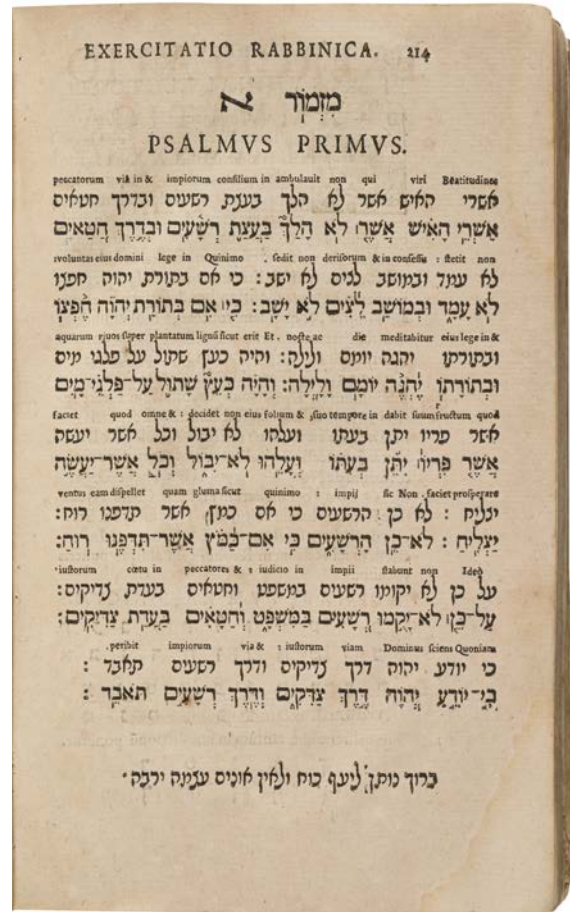 EXERCITATIO RABBINICA. 214
מִזְמוֹר א
PSALMVS PRIMVS.
peccatorum via in & impiorum consilium in ambulauit non qui viri Beatitudines
אשרי האיש אשר לא הלך בעצת רשעים ובדרך חטאים
אַשְׁרֵי הָאִישׁ אֲשֶׁר לֹא הָלַךְ בַּעֲצַת רְשָׁעִים וּבְדֶרֶךְ חַטָּאִים
: voluntas eius domini lege in Quinimo . sedit non derisorum & in consessu : stetit non
לא עמד ובמושב לצים לא ישב : כי אם בתורת יהוה חפצו
לֹא עָמָד וּבְמוֹשַׁב לֵצִים לֹא יָשָׁב : כִּי אִם בְּתוֹרַת יְהֹוָה חֶפְצוֹ
aquarum riuos super plantatum lignū sicut erit Et . nocte ac die meditabitur eius lege in &
ובתורתו יהגה יומם ולילה : והיה כעץ שתול על פלגי מים
וּבְתוֹרָתוֹ יֶהְגֶּה יוֹמָם וָלָיְלָה : וְהָיָה כְּעֵץ שָׁתוּל עַל־פַּלְגֵי־מָיִם
faciet quod omne & : decidet non eius folium & , suo tempore in dabit suum fructum quod
אשר פריו יתן בעתו ועלהו לא יבול וכל אשר יעשה
אֲשֶׁר פִּרְיוֹ יִתֵּן בְּעִתּוֹ וְעָלֵהוּ לֹא־יִבּוֹל וְכֹל אֲשֶׁר־יַעֲשֶׂה
ventus eam dispellet quam gluma sicut quinimo : impij sic Non . faciet prosperare
יצליח : לא כן הרשעים כי אם כמץ אשר תדפנו רוח :
יַצְלִיחַ : לֹא־כֵן הָרְשָׁעִים כִּי אִם־כַּמֹּץ אֲשֶׁר־תִּדְּפֶנּוּ רוּחַ :
. iustorum cœtu in peccatores & : iudicio in impii stabunt non Ideo
על כן לא יקומו רשעים במשפט וחטאים בעדת צדיקים :
עַל־כֵּן לֹא־יָקֻמוּ רְשָׁעִים בַּמִּשְׁפָּט וְחַטָּאִים בַּעֲדַת צַדִּיקִים :
. peribit impiorum via & : iustorum viam Dominus sciens Quoniam
כי יודע יהוה דרך צדיקים ודרך רשעים תאבד :
כִּי־יוֹדֵעַ יְהֹוָה דֶּרֶךְ צַדִּקִים וְדֶרֶךְ רְשָׁעִים תֹּאבֵד :
ברוך נותן ליעף כוח ולאין אונים עצמה ירבה .